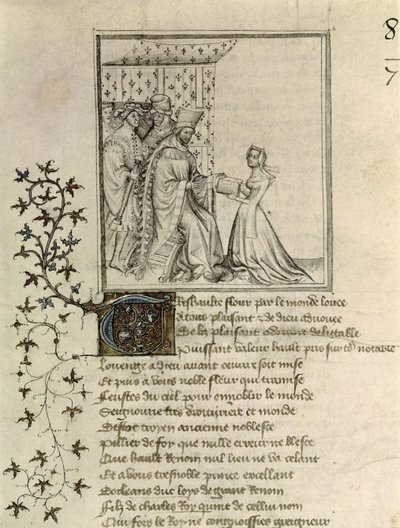 8
7
Treshaulte flour par le monde louee
A tous plaisant & de dieu advouee
De lis plaisant odourant delittable
Puissant valeur hault pris sur tous notable
Louenge a Dieu avant oeuvre soit mise
Et puis a vous noble fleur qui tramise
Feustes du ciel pour ennoblir le monde
Seignourie tres droituriere et monde
Destoc troyen ancienne noblesce
Pillier de foy que nulle erreur ne blesce
Que hault Renom nul lieu ne va celant
Et a vous tresnoble prince excellant
Dorleans duc loys de grant Renom
Filz de charles Roy quint de cellui nom
Qui fors le Roy ne congnoissiez greigneur